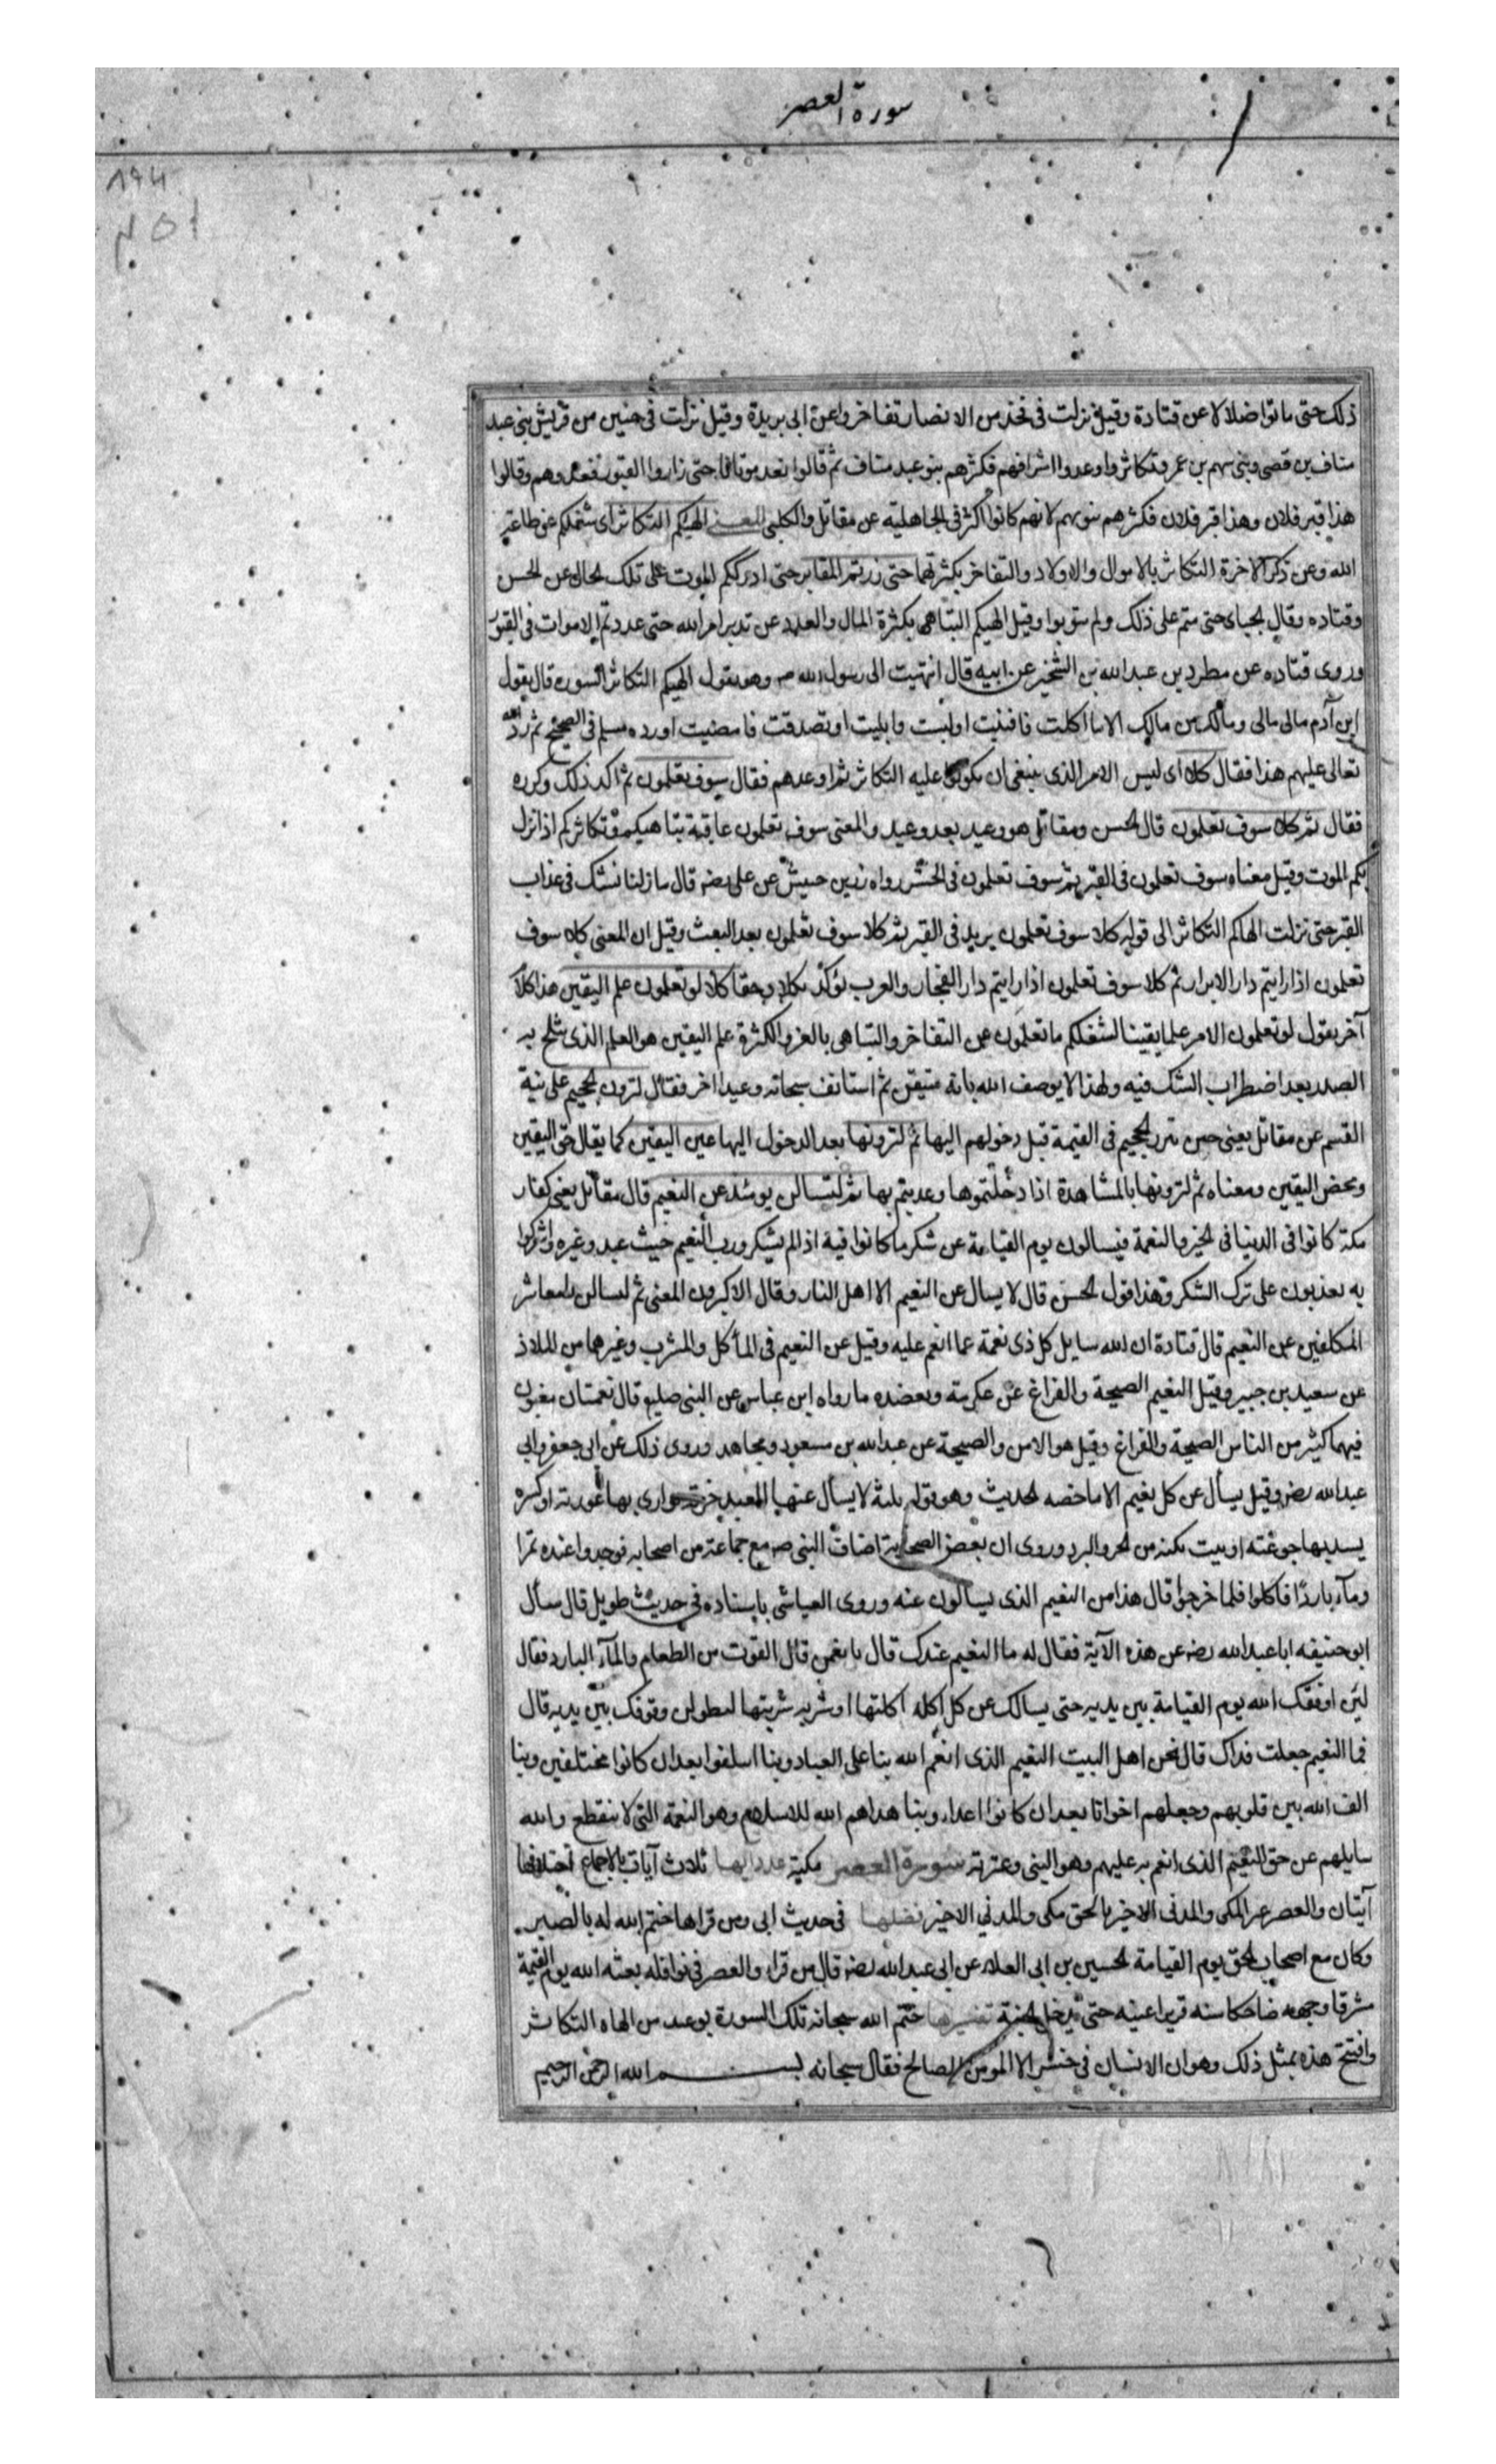 سورة العصر
ذلك حتى ماتوا ضلالا عن قتادة وقيل نزلت فى فخذ من الانصار تفاخروا عن ابى بريدة وقيل نزلت فى حيين من قريش بنى عبد
مناف بن قصى وبنى سهم بن عمرو تكاثروا وعدوا اشرافهم فكثرهم بنو عبد مناف ثم قالوا نعد موتانا حتى زاروا القبور فعدوهم وقالوا
هذا قبر فلان وهذا قبر فلان فكثرهم بنو سهم لانهم كانوا اكثر فى الجاهلية عن مقاتل والكلبى المعنى الهيكم التكاثر اى شغلكم عن طاعة
الله وعن ذكر الاخرة التكاثر بالاموال والاولاد والتفاخر بكثرتهما حتى زرتم المقابر حتى ادرككم الموت على تلك الحال عن الحسن
وقتاده وقال الجباى حتى متم على ذلك ولم تتوبوا وقيل الهيكم التباهى بكثرة المال والعدد عن تدبر امر الله حتى عددتم الاموات فى القبور
وروى قتاده عن مطرد بن عبد الله بن الشخير عن ابيه قال انتهيت الى رسول الله ص وهو يقول الهيكم التكاثر السورة قال يقول
ابن آدم مالى مالى ومالك من مالك الا ما اكلت فافنيت او لبست فابليت او تصدقت فامضيت اورده مسلم فى الصحيح ثم رد الله
تعالى عليهم هذا فقال كلا اى ليس الامر الذى ينبغى ان يكونوا عليه التكاثر ثم اوعدهم فقال سوف تعلمون ثم اكد ذلك وكرره
فقال ثم كلا سوف تعلمون قال الحسن ومقاتل هو وعيد بعد وعيد والمعنى سوف تعلمون عاقبة تباهيكم وتكاثركم اذا نزل
بكم الموت وقيل معناه سوف تعلمون فى القبر ثم سوف تعلمون فى الحشر رواه زر بن حبيش عن على رضه قال ما زلنا نشك فى عذاب
القبر حتى نزلت الهاكم التكاثر الى قوله كلا سوف تعلمون يريد فى القبر ثم كلا سوف تعلمون بعد البعث وقيل ان المعنى كلا سوف
تعلمون اذا رايتم دار الابرار ثم كلا سوف تعلمون اذا رايتم دار الفجار والعرب تؤكد بكلا وحقا كلا لو تعلمون علم اليقين هذا كلام
آخر يقول لو تعلمون الامر علما يقينا لشغلكم ما تعلمون عن التفاخر والتباهى بالعز والكثرة علم اليقين هو العلم الذى يثلج به
الصدر بعد اضطراب الشك فيه ولهذا لا يوصف الله بانه متيقن ثم استانف سبحانه وعيدا اخر فقال لترون الجحيم على نية
القسم عن مقاتل يعنى حين تبرز الجحيم فى القيمة قبل دخولهم اليها ثم لترونها بعد الدخول اليها عين اليقين كما يقال حق اليقين
ومحض اليقين ومعناه ثم لترونها بالمشاهدة اذا دخلتموها وعذبتم بها ثم لتسالن يومئذ عن النعيم قال مقاتل يعنى كفار
مكة كانوا فى الدنيا فى الخير والنعمة فيسالون يوم القيامة عن شكر ما كانوا فيه اذ لم يشكروا رب النعيم حيث عبدوا غيره واشركوا
به يعذبون على ترك الشكر وهذا قول الحسن قال لا يسال عن النعيم الا اهل النار وقال الاكثرون المعنى ثم لتسالن يا معاشر
المكلفين عن النعيم قال قتادة ان الله سايل كل ذى نعمة عما انعم عليه وقيل عن النعيم فى المأكل والمشرب وغيرهما من الملاذ
عن سعيد بن جبير وقيل النعيم الصحة والفراغ عن عكرمة ويعضده ما رواه ابن عباس عن النبى صلعم قال نعمتان مغبون
فيهما كثير من الناس الصحة والفراغ وقيل هو الامن والصحة عن عبد الله بن مسعود ومجاهد وروى ذلك عن ابى جعفر وابى
عبد الله رضه وقيل يسأل عن كل نعيم الا ما خصه الحديث وهو قوله ثلثة لا يسأل عنها العبد خرقة يوارى بها عورته او كسرة
يسد بها جوعته او بيت يكنه من الحر والبرد وروى ان بعض الصحابة اضاف النبى ص مع جماعة من اصحابه فوجدوا عنده تمرا
ومآء باردًا فاكلوا فلما خرجوا قال هذا من النعيم الذى يسالون عنه وروى العياشى باسناده فى حديث طويل قال سأل
ابو حنيفه ابا عبد الله رضه عن هذه الآية فقال له ما النعيم عندك قال يا نعمن قال القوت من الطعام والمآء البارد فقال
لئن اوقفك الله يوم القيامة بين يديه حتى يسالك عن كل اكلة اكلتها او شربه شربتها ليطولن وقوفك بين يديه قال
فما النعيم جعلت فداك قال نحن اهل البيت النعيم الذى انعم الله بنا على العباد وبنا اسلفوا بعد ان كانوا مختلفين وبنا
الف الله بين قلوبهم وجعلهم اخوانا بعد ان كانوا اعداء وبنا هداهم الله للاسلام وهو النعمة التى لا تنقطع والله
سايلهم عن حق النعيم الذى انعم به عليهم وهو النبى وعترته سورة العصر مكية عدد آيها ثلاث آيات بالاجماع اختلافها
آيتان والعصر غير المكى والمدنى الاخير بالحق مكى والمدنى الاخير فضلها فى حديث ابى ومن قراها ختم الله له بالصبر
وكان مع اصحاب الحق يوم القيامة الحسين بن ابى العلاء عن ابى عبد الله رضه قال من قراء والعصر فى نوافله بعثه الله يوم القيمة
مشرقا وجهه ضاحكا سنه قريرا عينه حتى يدخل الجنة تفسيرها ختم الله سبحانه تلك السورة بوعيد من الهاه التكاثر
وافتتح هذه بمثل ذلك وهو ان الانسان فى خسر الا المومن الصالح فقال سبحانه بسم الله الرحمن الرحيم